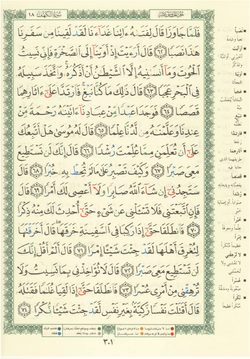 فَلَمَّا جَاوَزَا قَالَ لِفَتَىٰهُ ءَاتِنَا غَدَآءَنَا لَقَدْ لَقِينَا مِن سَفَرِنَا
هَٰذَا نَصَبًا ٦٢ قَالَ أَرَءَيْتَ إِذْ أَوَيْنَآ إِلَى ٱلصَّخْرَةِ فَإِنِّى نَسِيتُ
ٱلْحُوتَ وَمَآ أَنسَىٰنِيهُ إِلَّا ٱلشَّيْطَٰنُ أَنْ أَذْكُرَهُۥ وَٱتَّخَذَ سَبِيلَهُۥ
فِى ٱلْبَحْرِ عَجَبًا ٦٣ قَالَ ذَٰلِكَ مَا كُنَّا نَبْغِ فَٱرْتَدَّا عَلَىٰٓ ءَاثَارِهِمَا
قَصَصًا ٦٤ فَوَجَدَا عَبْدًا مِّنْ عِبَادِنَآ ءَاتَيْنَٰهُ رَحْمَةً مِّنْ
عِندِنَا وَعَلَّمْنَٰهُ مِن لَّدُنَّا عِلْمًا ٦٥ قَالَ لَهُۥ مُوسَىٰ هَلْ أَتَّبِعُكَ
عَلَىٰٓ أَن تُعَلِّمَنِ مِمَّا عُلِّمْتَ رُشْدًا ٦٦ قَالَ إِنَّكَ لَن تَسْتَطِيعَ
مَعِىَ صَبْرًا ٦٧ وَكَيْفَ تَصْبِرُ عَلَىٰ مَا لَمْ تُحِطْ بِهِۦ خُبْرًا ٦٨ قَالَ
سَتَجِدُنِىٓ إِن شَآءَ ٱللَّهُ صَابِرًا وَلَآ أَعْصِى لَكَ أَمْرًا ٦٩ قَالَ
فَإِنِ ٱتَّبَعْتَنِى فَلَا تَسْـَٔلْنِى عَن شَىْءٍ حَتَّىٰٓ أُحْدِثَ لَكَ مِنْهُ ذِكْرًا
٧٠ فَٱنطَلَقَا حَتَّىٰٓ إِذَا رَكِبَا فِى ٱلسَّفِينَةِ خَرَقَهَا قَالَ أَخَرَقْتَهَا
لِتُغْرِقَ أَهْلَهَا لَقَدْ جِئْتَ شَيْـًٔا إِمْرًا ٧١ قَالَ أَلَمْ أَقُلْ إِنَّكَ
لَن تَسْتَطِيعَ مَعِىَ صَبْرًا ٧٢ قَالَ لَا تُؤَاخِذْنِى بِمَا نَسِيتُ وَلَا
تُرْهِقْنِى مِنْ أَمْرِى عُسْرًا ٧٣ فَٱنطَلَقَا حَتَّىٰٓ إِذَا لَقِيَا غُلَٰمًا فَقَتَلَهُۥ
قَالَ أَقَتَلْتَ نَفْسًا زَكِيَّةًۢ بِغَيْرِ نَفْسٍ لَّقَدْ جِئْتَ شَيْـًٔا نُّكْرًا ٧٤
٣٠١